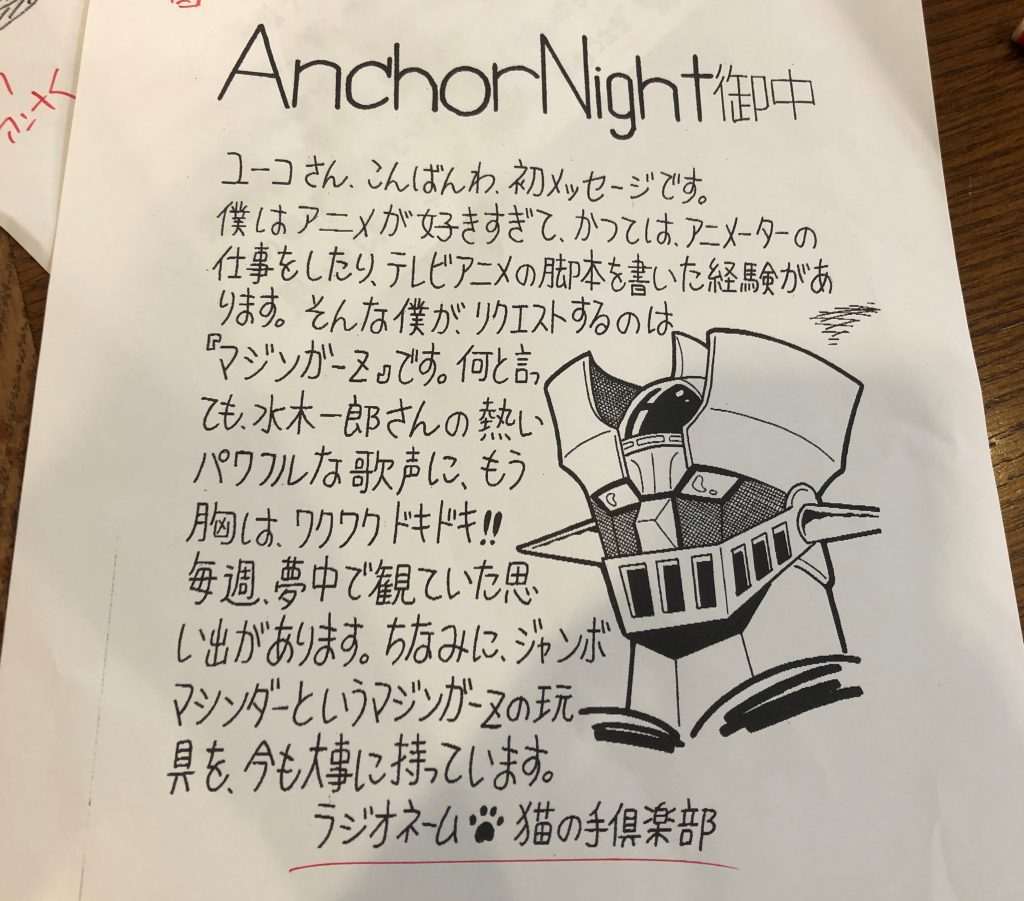 AnchorNight御中
ユーコさん、こんばんわ、初メッセージです。
僕はアニメが好きすぎて、かつては、アニメーターの
仕事をしたり、テレビアニメの脚本を書いた経験があ
ります。そんな僕が、リクエストするのは
『マジンガーZ』です。何と言っ
ても、水木一郎さんの熱い
パワフルな歌声に、もう
胸は、ワクワクドキドキ!!
毎週、夢中で観ていた思
い出があります。ちなみに、ジャンボ
マシンダーというマジンガーZの玩
具を、今も大事に持っています。
ラジオネーム🐾猫の手倶楽部
アンメく